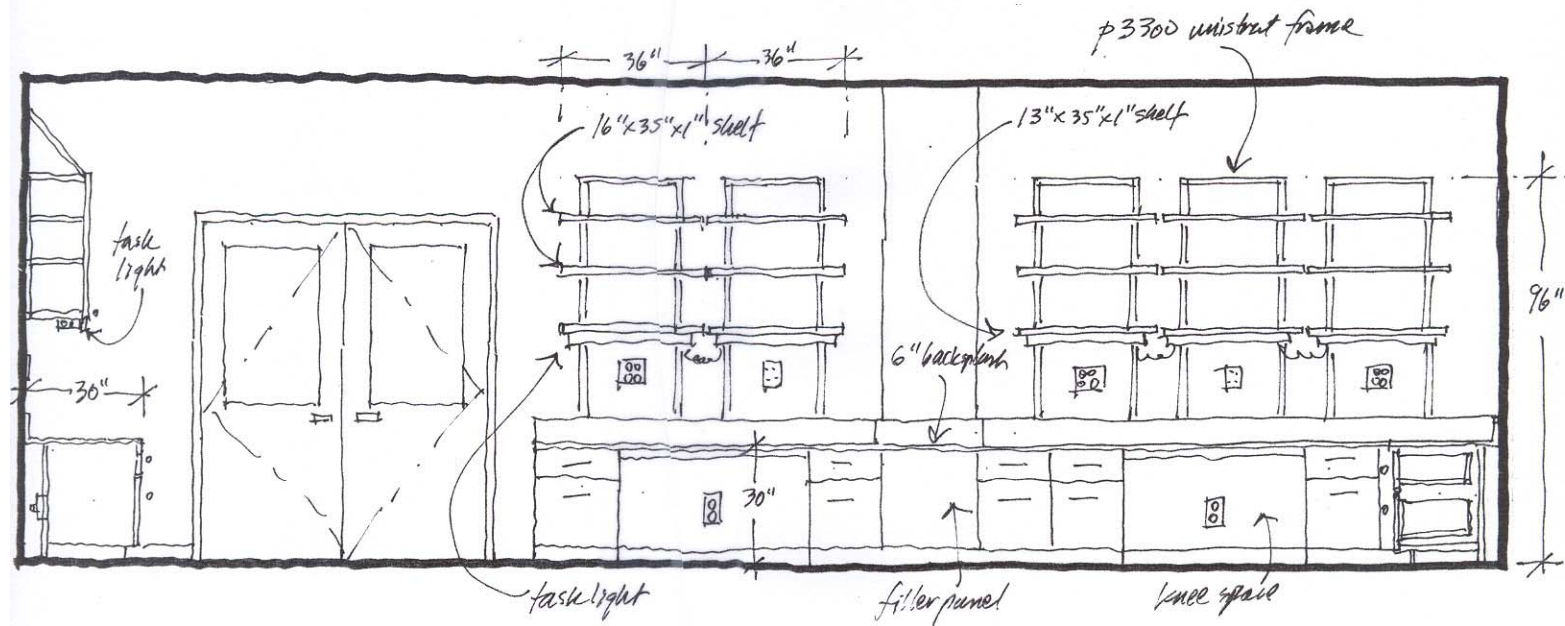 p3300 unistrut frame
36" 36"
16"x35"x1" shelf
13"x35"x1" shelf
task
light
96"
6" backsplash
30"
30"
task light
filler panel
knee space